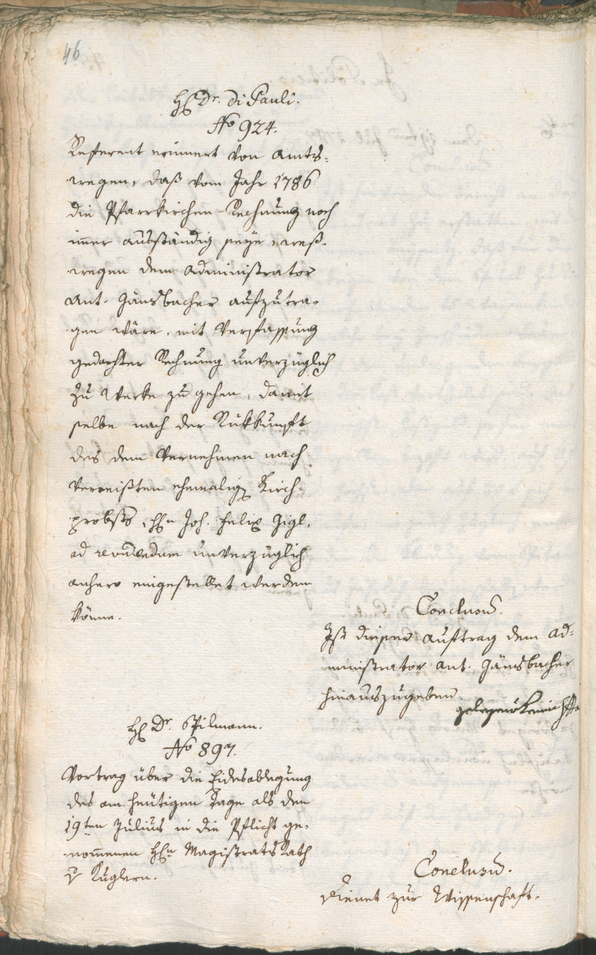 46
H: Dr. di Pauli.
No 924.
Referent erinnert von Amts-
wegen, daß vom Jahr 1786
die Pfarrkirchen-Rechnung noch
immer ausständig seye, wess-
wegen dem Administrator
Ant. Gänsbacher aufzutra-
gen wäre, mit Verfassung
gedachter Rechnung unverzüglich
zu Werke zu gehen, damit
selbe nach der Rükkunft
des dem Vernehmen nach
verreißten ehemalig. Kirch-
probsts, Hn Joh. Felix Zigl,
ad revidendum unverzüglich
anhero eingestellet werden
könne.
Conclusum.
Ist dieser Auftrag dem Ad-
ministrator Ant. Gänsbacher
hinauszugeben
H: Dr. Spilmann.
No 897.
Vortrag über die Eidesablegung
des am heutigen Tage als den
19ten Julius in die Pflicht ge-
nommenen Hn Magistrats Rath
v Kuglern.
Conclusum.
Dienet zur Wissenschaft.